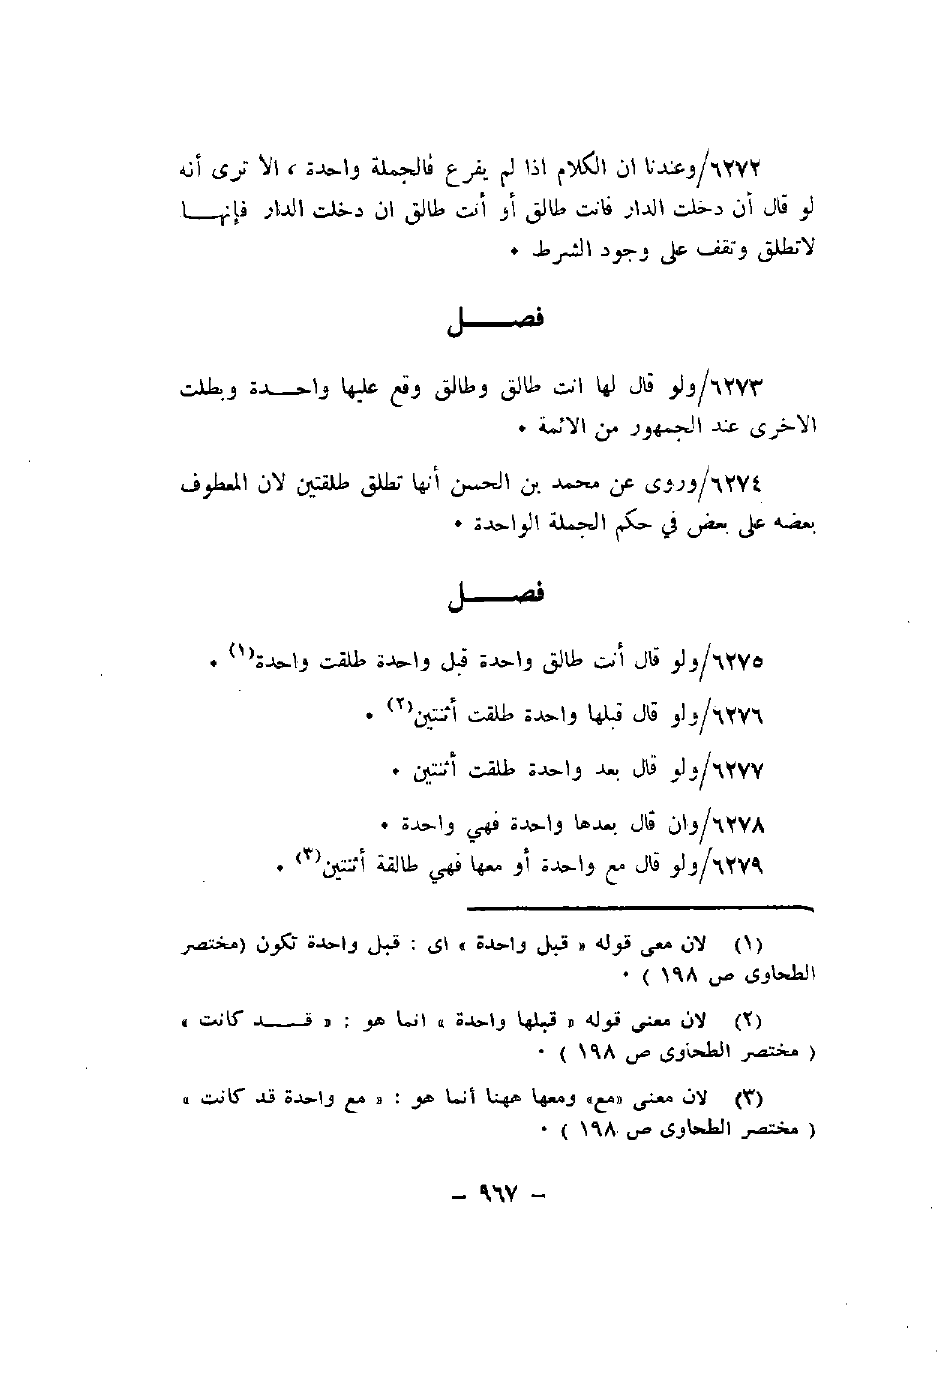 ٦٢٧٢/وعندنا ان الكلام اذا لم يفرع فالجملة واحدة ، الا ترى أنه
لو قال أن دخلت الدار فانت طالق أو أنت طالق ان دخلت الدار فإنهــا
لاتطلق وتقف على وجود الشرط .
فصــــل
٦٢٧٣/ولو قال لها انت طالق وطالق وقع عليها واحـــدة وبطلت
الاخرى عند الجمهور من الائمة .
٦٢٧٤/وروى عن محمد بن الحسن أنها تطلق طلقتين لان المعطوف
بعضه على بعض في حكم الجملة الواحدة .
فصــــل
٦٢٧٥/ولو قال أنت طالق واحدة قبل واحدة طلقت واحدة(١) .
٦٢٧٦/ولو قال قبلها واحدة طلقت أثنتين(٢) .
٦٢٧٧/ولو قال بعد واحدة طلقت أثنتين .
٦٢٧٨/وان قال بعدها واحدة فهي واحدة .
٦٢٧٩/ولو قال مع واحدة أو معها فهي طالقة أثنتين(٣) .
(١) لان معى قوله « قبل واحدة » اى : قبل واحدة تكون (مختصر
الطحاوى ص ١٩٨ ) .
(٢) لان معنى قوله « قبلها واحدة » انما هو : « قـــد كانت »
( مختصر الطحاوى ص ١٩٨ ) .
(٣) لان معنى «مع» ومعها ههنا أنما هو : « مع واحدة قد كانت »
( مختصر الطحاوى ص ١٩٨ ) .
– ٩٦٧ –